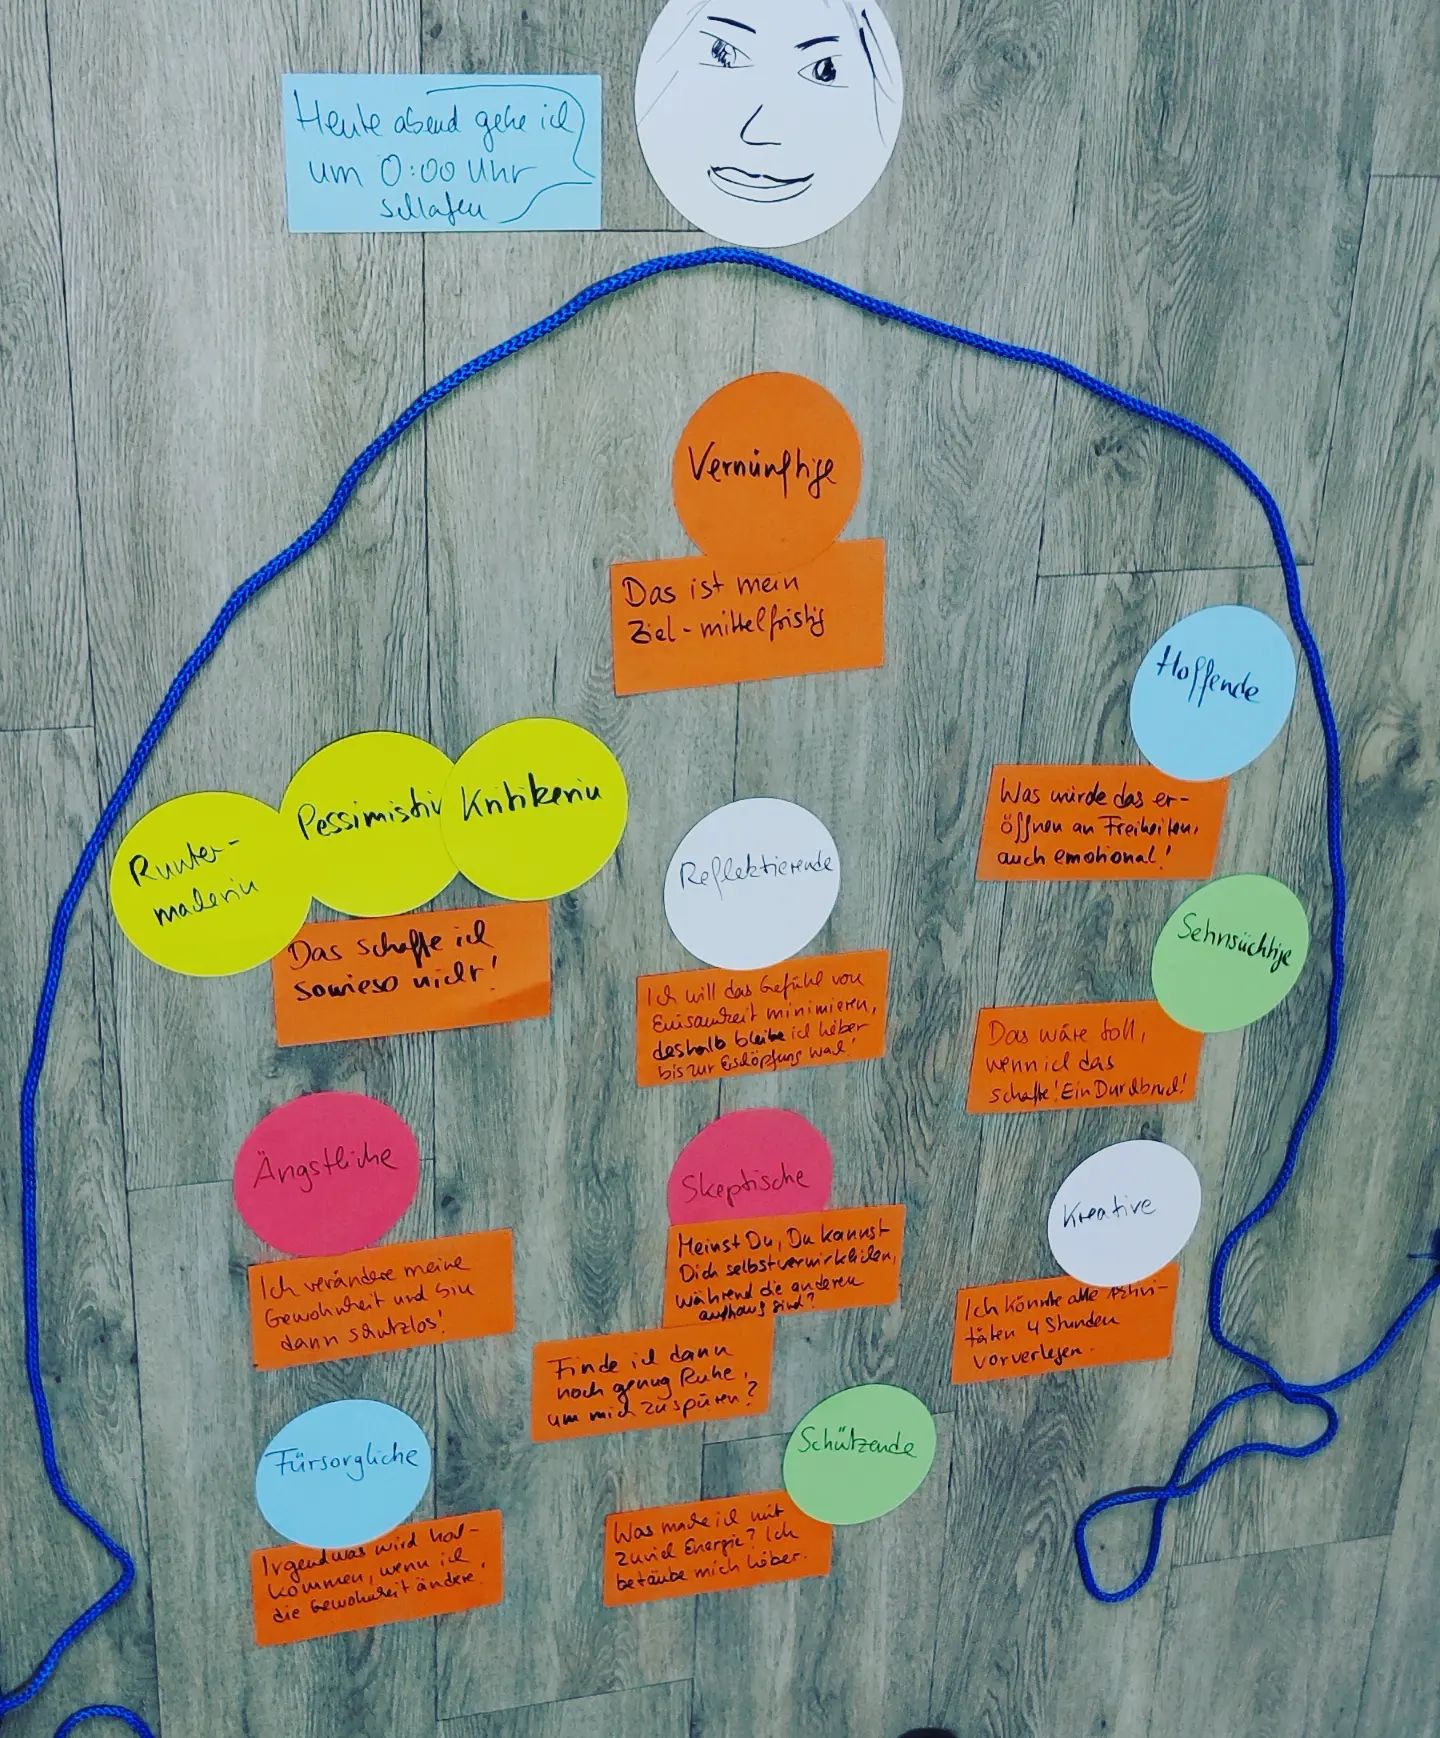 Heute abend gehe ich
um 0:00 Uhr
schlafen
Vernünftige
Das ist mein
Ziel - mittelfristig
Hoffende
Was würde das er-
öffnen an Freiheiten,
auch emotional!
Runter-
macherin
Pessimistin
Kritikerin
Das schaffe ich
sowieso nicht!
Reflektierende
Ich will das Gefühl von
Einsamkeit minimieren,
deshalb bleibe ich lieber
bis zur Erschöpfung wach!
Sehnsüchtige
Das wäre toll,
wenn ich das
schaffe! Ein Durchbruch!
Ängstliche
Ich verändere meine
Gewohnheit und bin
dann schutzlos!
Skeptische
Meinst Du, Du kannst
Dich selbstverwirklichen,
während die anderen
aufhaus sind?
Finde ich dann
noch genug Ruhe,
um mich zu spüren?
Kreative
Ich könnte alle Aktivi-
täten 4 Stunden
vorverlegen.
Fürsorgliche
Irgendwas wird
kommen, wenn ich
die Gewohnheit ändere!
Schützende
Was mache ich mit
zuviel Energie? Ich
betäube mich lieber.